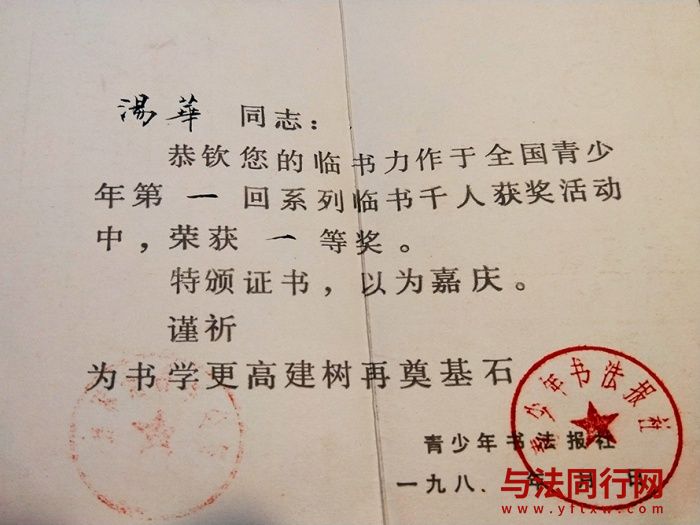 湯華 同志：
恭钦您的临书力作于全国青少
年第 一 回系列临书千人获奖活动
中，荣获 一 等奖。
特颁证书，以为嘉庆。
谨祈
为书学更高建树再奠基石
青少年书法报社
青少年书法报社
一九八. 年 月 日
与法同行网
www.yftxw.com